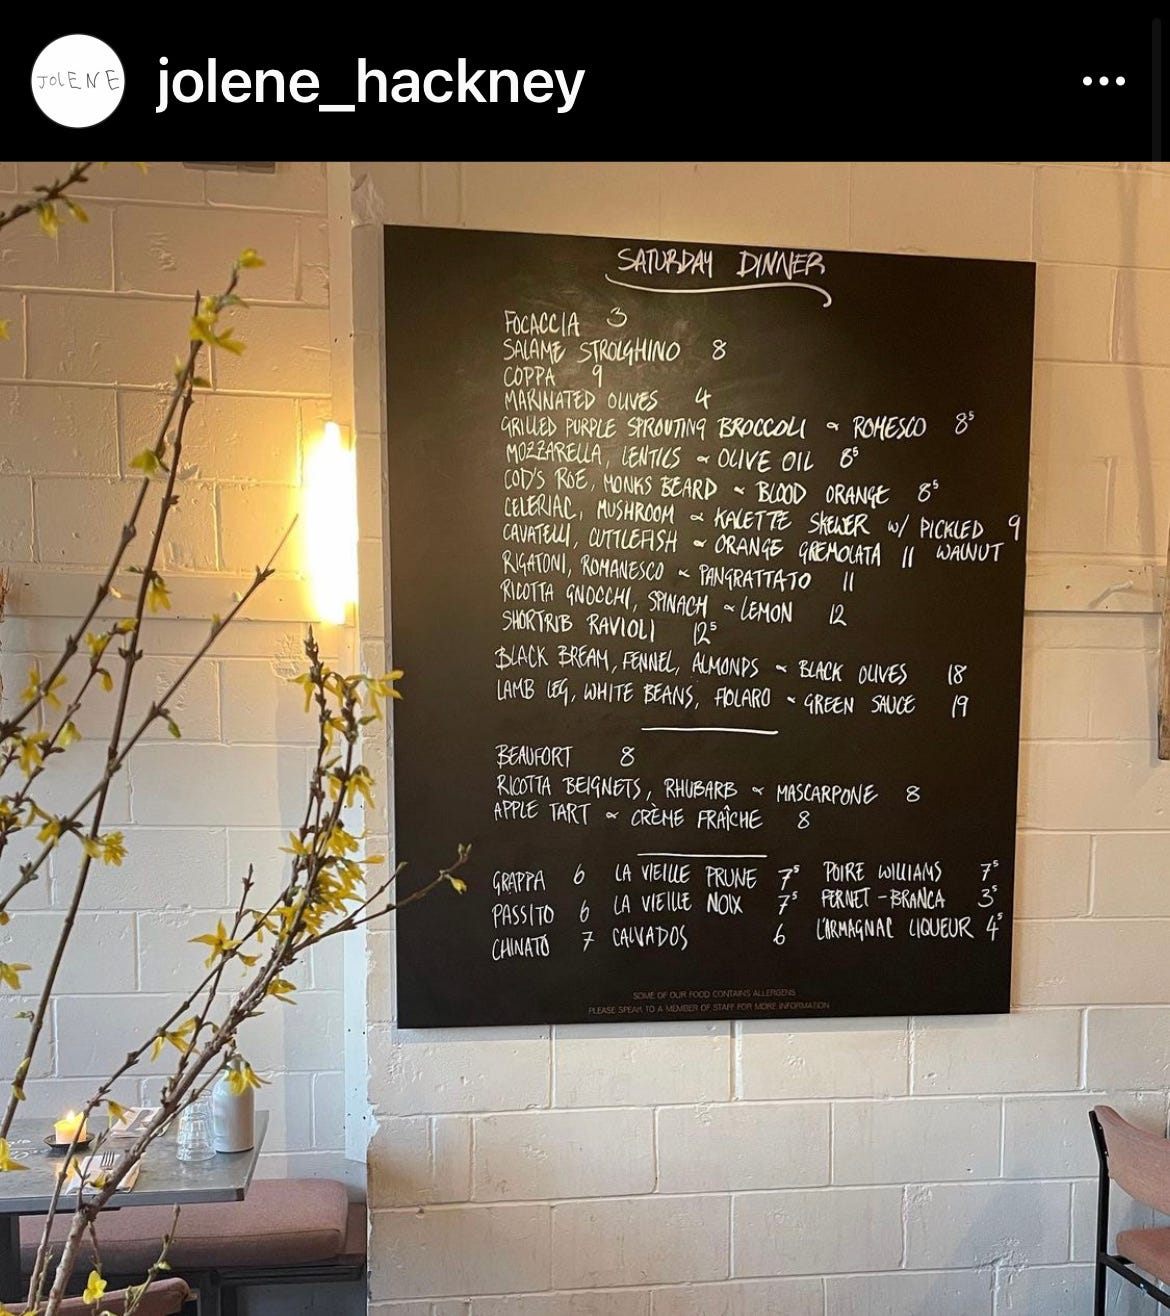 JOLENE
jolene_hackney
SATURDAY DINNER
FOCACCIA 3
SALAME STROLGHINO 8
COPPA 9
MARINATED OLIVES 4
GRILLED PURPLE SPROUTING BROCCOLI & ROMESCO 8⁵
MOZZARELLA, LENTILS & OLIVE OIL 8⁵
COD'S ROE, MONKS BEARD & BLOOD ORANGE 8⁵
CELERIAC, MUSHROOM & KALETTE SKEWER W/ PICKLED 9
WALNUT
CAVATELLI, CUTTLEFISH & ORANGE GREMOLATA 11
RIGATONI, ROMANESCO & PANGRATTATO 11
RICOTTA GNOCCHI, SPINACH & LEMON 12
SHORTRIB RAVIOLI 12⁵
BLACK BREAM, FENNEL, ALMONDS & BLACK OLIVES 18
LAMB LEG, WHITE BEANS, FIOLARO & GREEN SAUCE 19
BEAUFORT 8
RICOTTA BEIGNETS, RHUBARB & MASCARPONE 8
APPLE TART & CRÈME FRAÎCHE 8
GRAPPA 6 LA VIEILLE PRUNE 7⁵ POIRE WILLIAMS 7⁵
PASSITO 6 LA VIEILLE NOIX 7⁵ FERNET-BRANCA 3⁵
CHINATO 7 CALVADOS 6 L'ARMAGNAC LIQUEUR 4⁵
SOME OF OUR FOOD CONTAINS ALLERGENS
PLEASE SPEAK TO A MEMBER OF STAFF FOR MORE INFORMATION